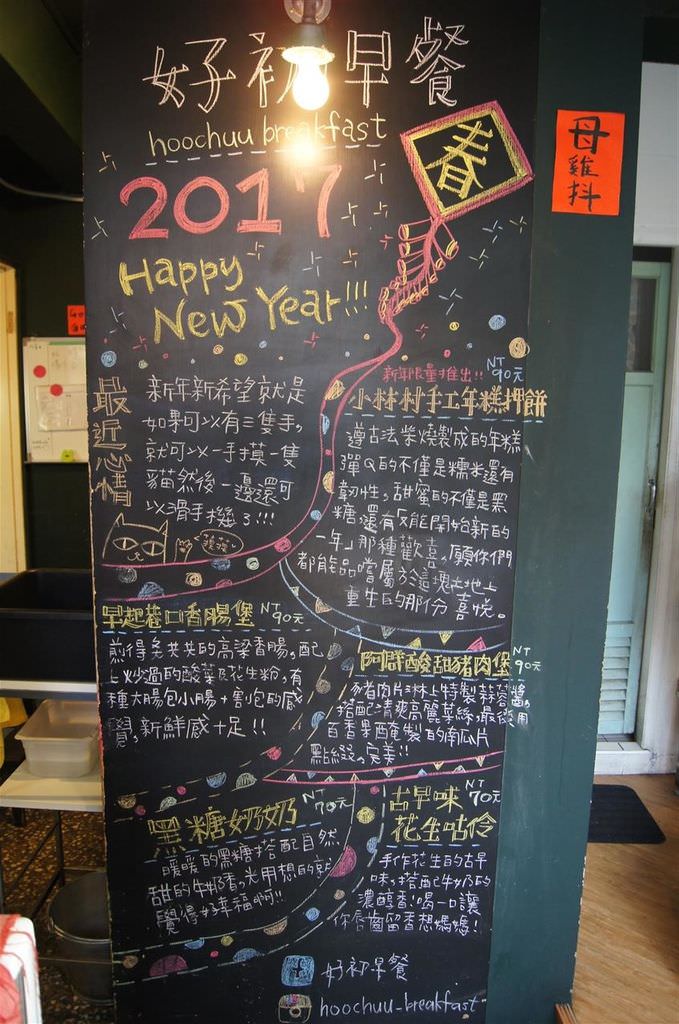 好初早餐
hoochuu breakfast
2017
春
Happy
New Year!!!
母雞抖
最近心情
新年新希望就是
如果可以有三隻手,
就可以一手摸一隻
貓然後一邊還可
以滑手機了!!!
新年限量推出!!
NT 90元
小林村手工年糕押餅
遵古法柴燒製成的年糕
彈Q的不僅是糯米還有
韌性,甜蜜的不僅是黑
糖還有「又能開始新的
一年」那種歡喜,願你們
都能品嚐屬於這塊土地上
重生的那份喜悅。
早起巷口香腸堡
NT 90元
煎得美共共的高粱香腸,配
上炒過的酸菜及花生粉,有
種大腸包小腸+割包的感
覺,新鮮感十足!!
阿群酸甜豬肉堡
NT 90元
豬肉片淋上特製蒜蓉醬,
搭配清爽高麗菜絲,最後用
百香果醃製的南瓜片
點綴,完美!!
黑糖奶奶
NT 70元
暖暖的黑糖搭配自然
甜的牛奶香,光用想的就
覺得好幸福啊!!
古早味
NT 70元
花生咕伶
手作花生的古早
味,搭配牛奶的
濃醇香!喝一口讓
你唇齒留香想媽媽!
好初早餐
hoochuu_breakfast